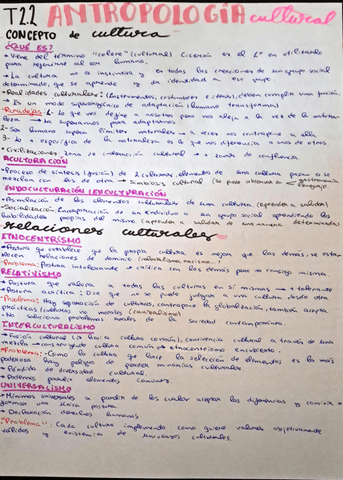 T2.2 ANTROPOLOGÍA cultural
CONCEPTO de cultura
¿QUÉ ES?
• Viene del término "colere" (cultural) Cicerón es el 1º en utilizarlo
para referirse al ser humano.
• La cultura no es instintiva y es todas las creaciones de un grupo social
determinado, que se aprende y da identidad a ese grupo
• Realidades culturales: (instrumentos, costumbres e ideas), deben cumplir una función.
• Es un modo supraorgánico de adaptación (humano transforma)
• Paradojas: 1- Lo que nos dirige a nosotros pero nos aleja a la vez de la naturaleza
La superamos para adaptarnos
2- Ser humano supera límites naturales → a veces nos contrapone a ella
3- Lo + específico de la naturaleza es lo que nos diferencia a unos de otros
• Civilización: zona de interacción cultural → a través de conflictos.
ACULTURACIÓN
• Proceso de síntesis (fusión) de 2 culturas, elementos de una cultura pasan o se
mezclan con los de otra → Simbiosis cultural (lo pone observar en gastronomía lenguaje.
ENDOCULTURACIÓN (ENCULTURACIÓN)
• Asimilación de los elementos culturales de una cultura (aprender a validar)
• Socialización: Incorporación de un individuo a un grupo social aprendiendo las
habilidades propias del mismo (aprender a validar de una manera determinada)
relaciones culturales
ETNOCENTRISMO
• Postura que establece que la propia cultura es mejor que las demás, se establecen
relaciones de dominio (colonialismo, nacionalismo
• Problema: Postura intolerante → crítica con las demás pero no consigo misma
RELATIVISMO
• Postura que valora a todas las culturas en sí mismas → + tolerante
• Postura a-crítica: Dice que no se puede juzgar a una cultura desde otra
• Problema: Hay separación de culturas, contrapone la globalización, también acepta
prácticas culturales no morales (canibalismo)
• No soluciona problemas reales de la sociedad contemporánea.
INTERCULTURALISMO
• Fusión cultural (se hace la cultura común), convivencia cultural a través de una
mezcla para conseguir cultura común → etnocentrismo encubierto.
• Problema: Como la cultura que hace la selección de elementos es la más
poderosa hay peligro de perder minorías culturales
• Pérdida de diversidad cultural
• Podemos perder elementos comunes
UNIVERSALISMO
• Mínimos universales a partir de los cuales aceptar las diferencias y convivir o
formar una única postura
• Declaración derechos humanos
• Problema: Cada cultura implementa como quiere valores objetivamente
válidos y existencia de universos culturales.